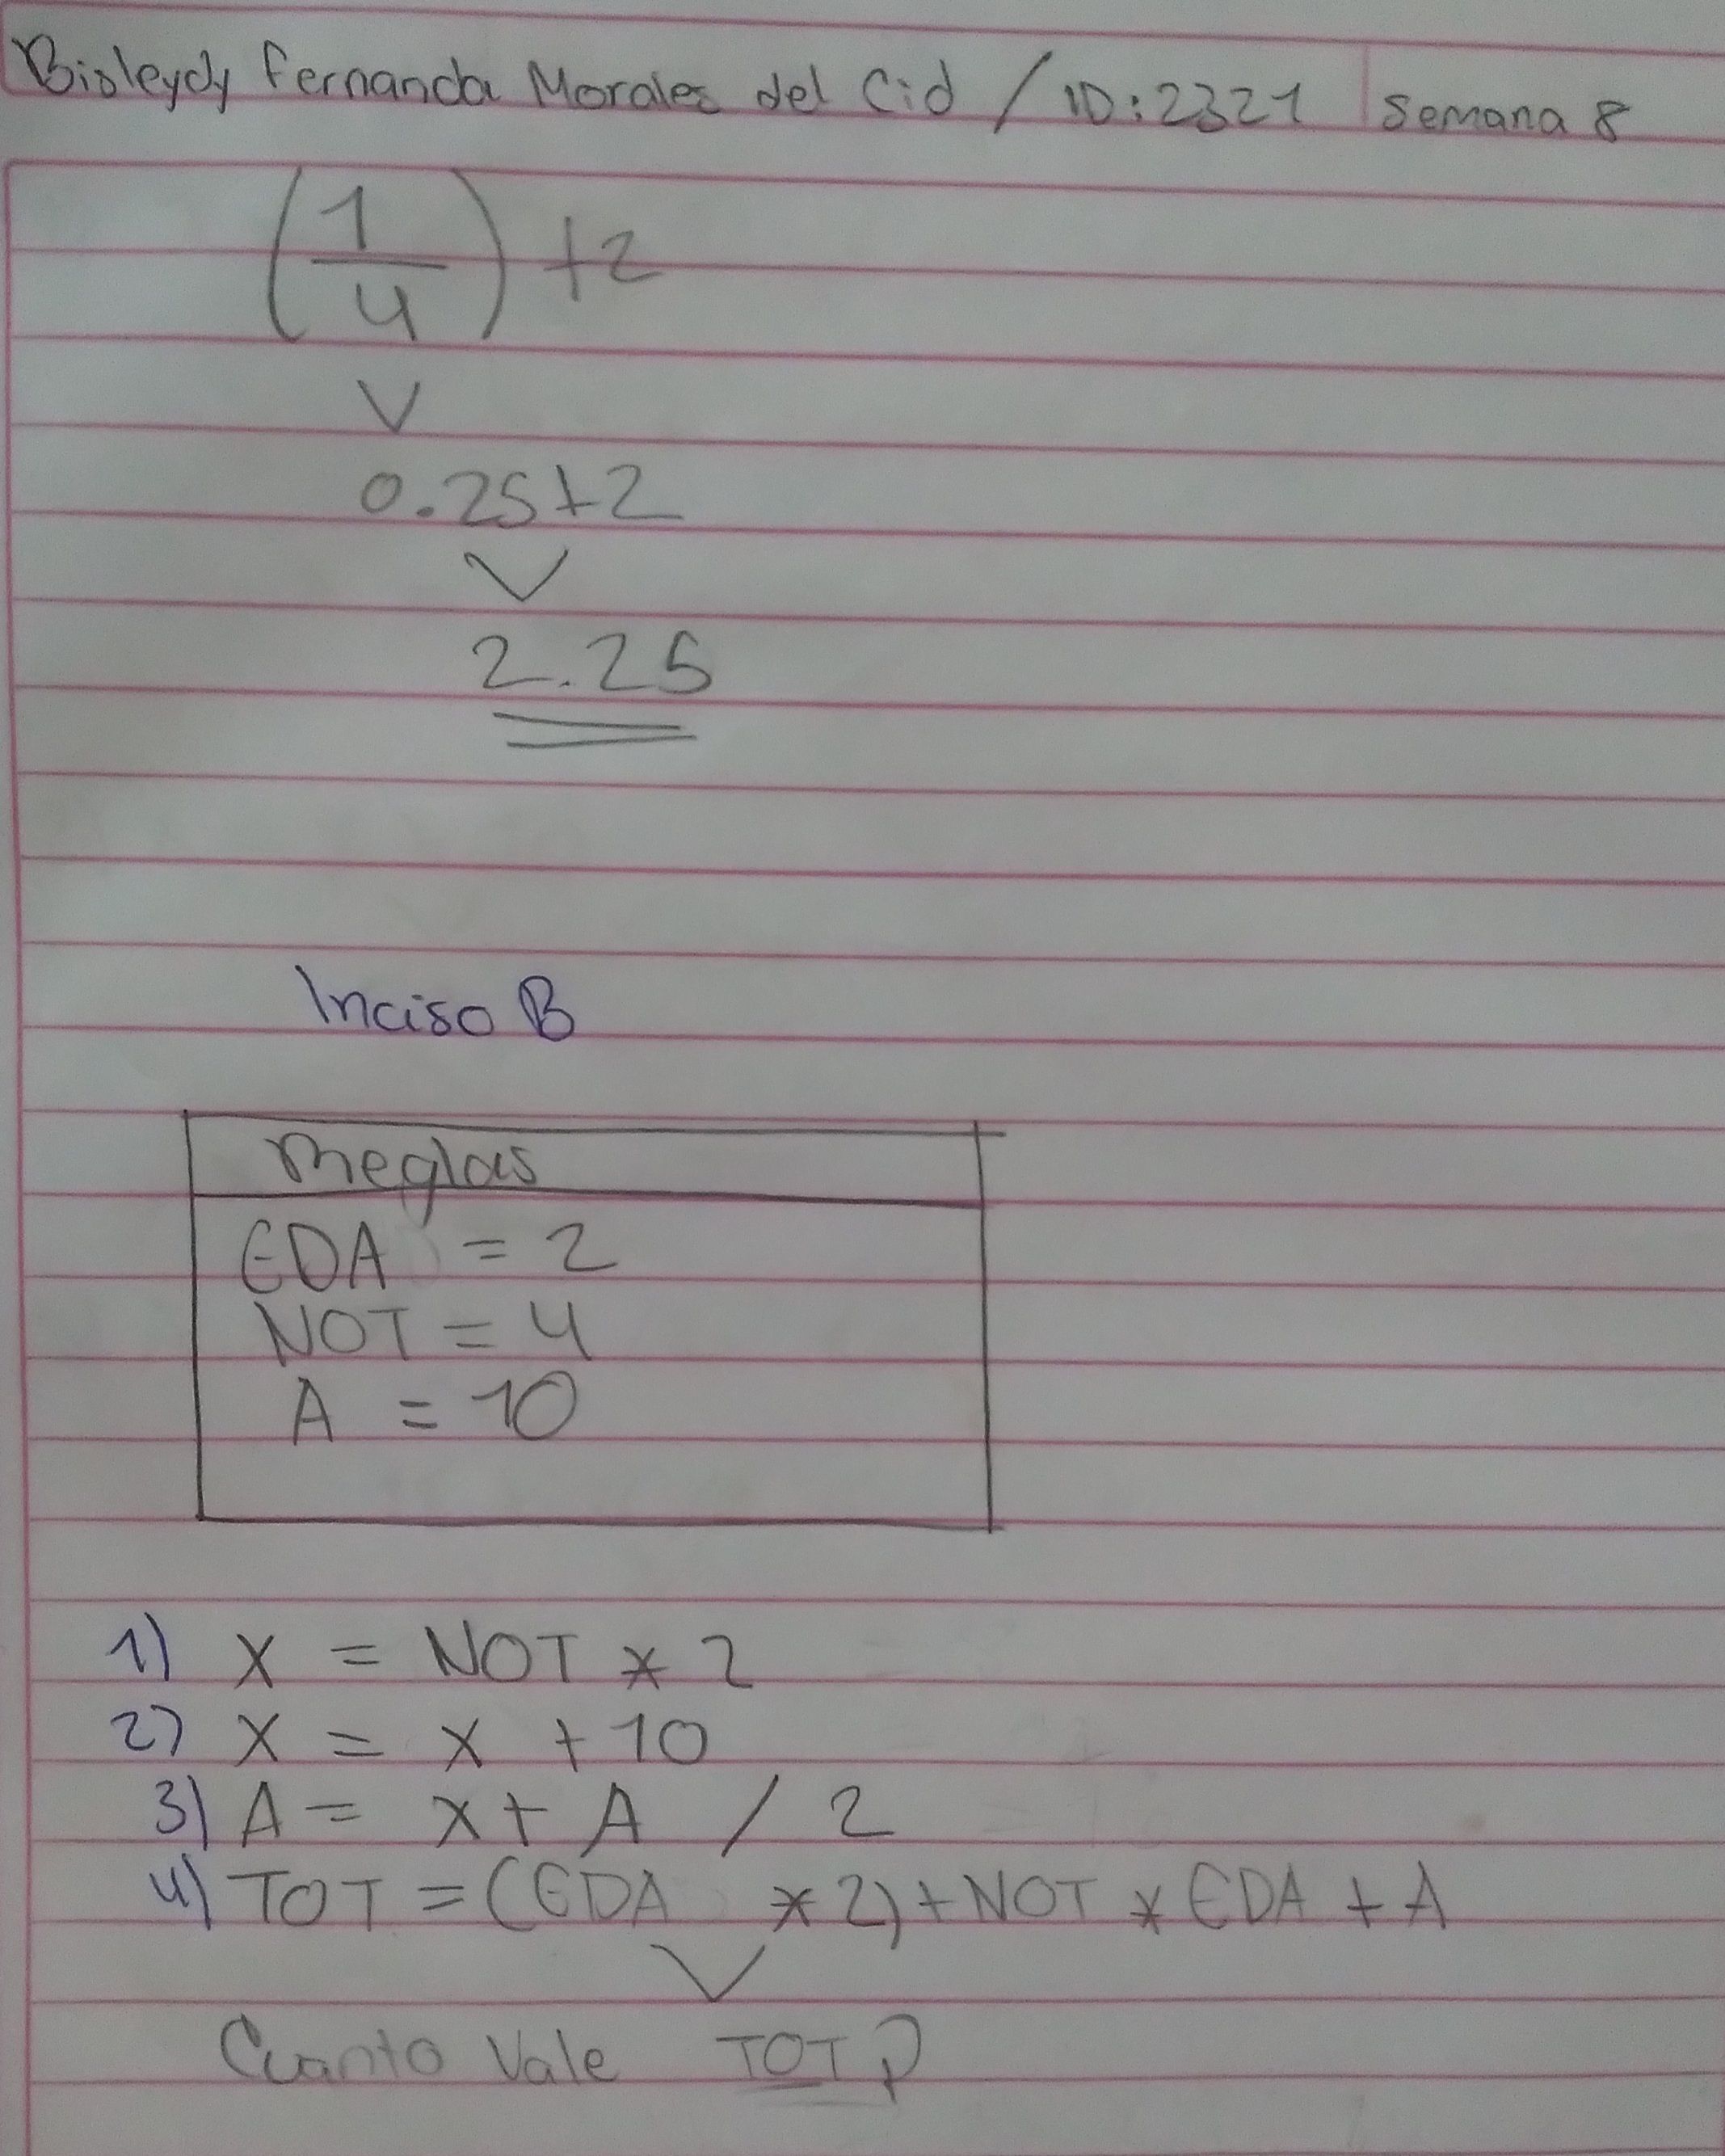 Bisleydy Fernanda Morales del Cid / ID: 2321 Semana 8
(1/4) +2
V
0.25+2
V
2.25
Inciso B
Reglas
EDA = 2
NOT = 4
A = 10
1) X = NOT * 2
2) X = X + 10
3) A = X + A / 2
4) TOT = (EDA * 2) + NOT * EDA + A
V
Cuanto Vale TOT?